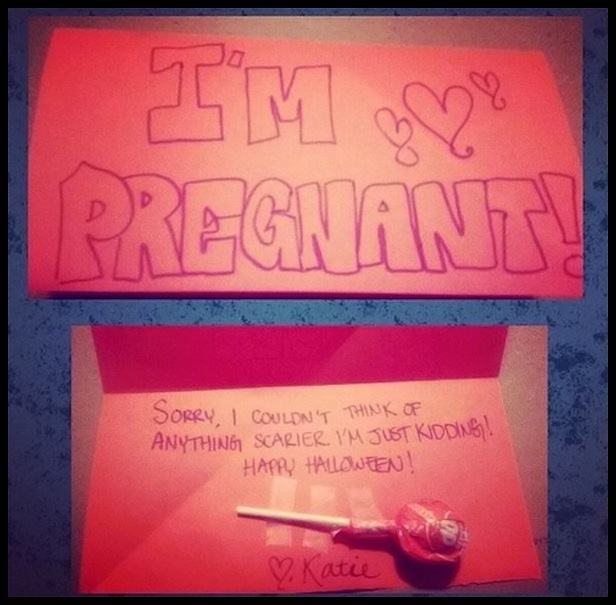 I'M
PREGNANT!
SORRY, I COULDN'T THINK OF
ANYTHING SCARIER I'M JUST KIDDING!
HAPPY HALLOWEEN!
♡. Katie